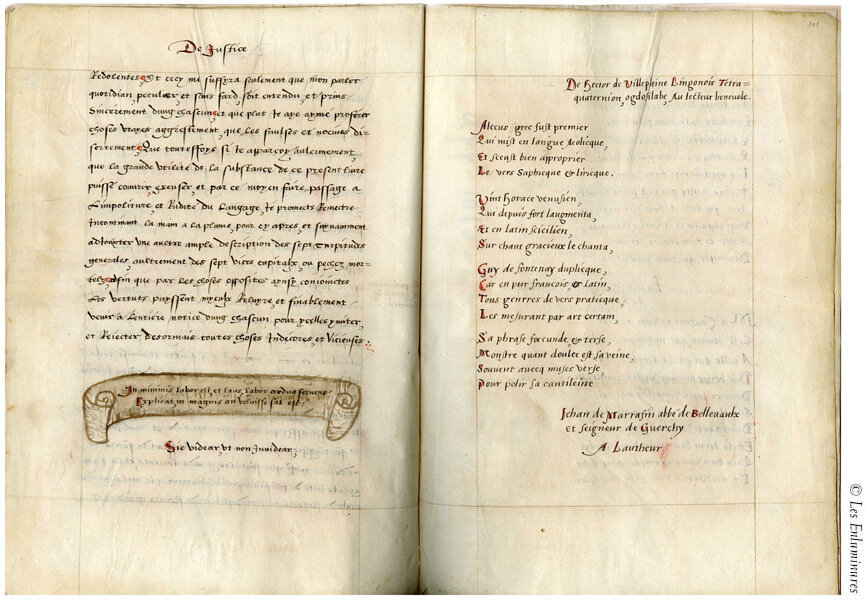 De Justice
Redolentes, Et cecy me suffyra seulement que mon parler
quotidian peculier, et sans fard, soit entendu, et prins
Sincerement dung chascun, et que plus Je aye ayme proferer
choses vrayes aggrestement, que les faulses et nocives di-
sertement, Que touteffoys si te apparcoy aulcunement,
que la grande utilite de la substance de ce present livre
puisse couvrir, excuser, et par ce moyen faire passage a
Limpoliture, et Rudite du Langage, Je promects Remectre
Incontinant la main a la plume, pour cy apres, et
adjouxter une aultre ample description des sept Turpitudes
generales, aultrement des sept vices capitaulx, ou pechez mor-
telz, affin que par les choses opposites ainsy conioinctes
Les vertuts puyssent myeulx Reluyre, et finablement
venir a Lentiere notice dung chascun, pour ycelles ymiter,
et Rejecter desormais toutes choses Indecores, et Vicieuses
In minimis labor est, et laus, labor ardua fervens
Explicat, in magnis an voluisse sat est.
Sic videar, ut non Invidear,
101
De Hector de Villepleine Lingonois Tetra=
quaternion ogdosilabe, Au lecteur benevole.
Alceus grec fust premier
Qui mist en langue Aeolicque,
Et sceust bien approprier
Le vers Saphicque et liricque.
Vint horace venusien,
Qui depuis fort laugmenta,
Et en latin scicilien,
Sur chant gracieux le chanta,
Guy de fontenay duplicque,
Car en pur francois, et latin,
Tous genrres de vers praticque,
Les mesurant par art certain,
Sa phrase fœcunde, et terse,
Monstre quant doulce est sa veine,
Souvent avecq muses verse,
Pour polir sa cantileine
Jehan de Marrasin abbe de Bellevaulx
et seigneur de Guerchy
A Lautheur,
© Les Enluminures